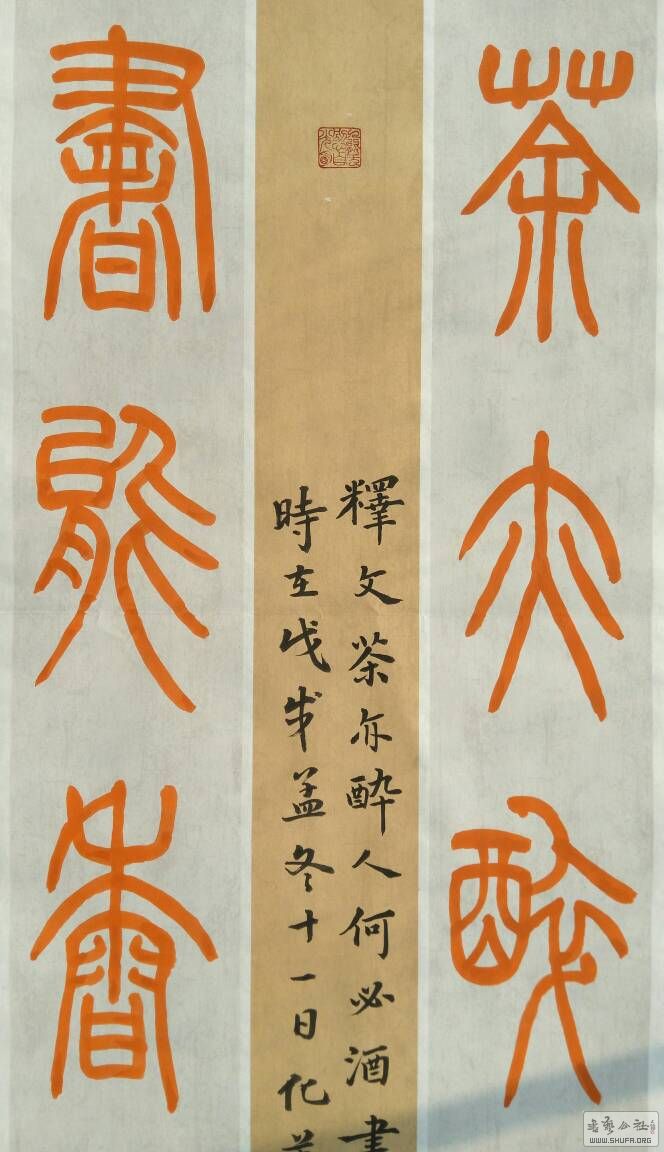 茶亦醉
釋文茶亦醉人何必酒書
時在戊戌孟冬十一日化
書能香
書藝公社
WWW.SHUFA.ORG